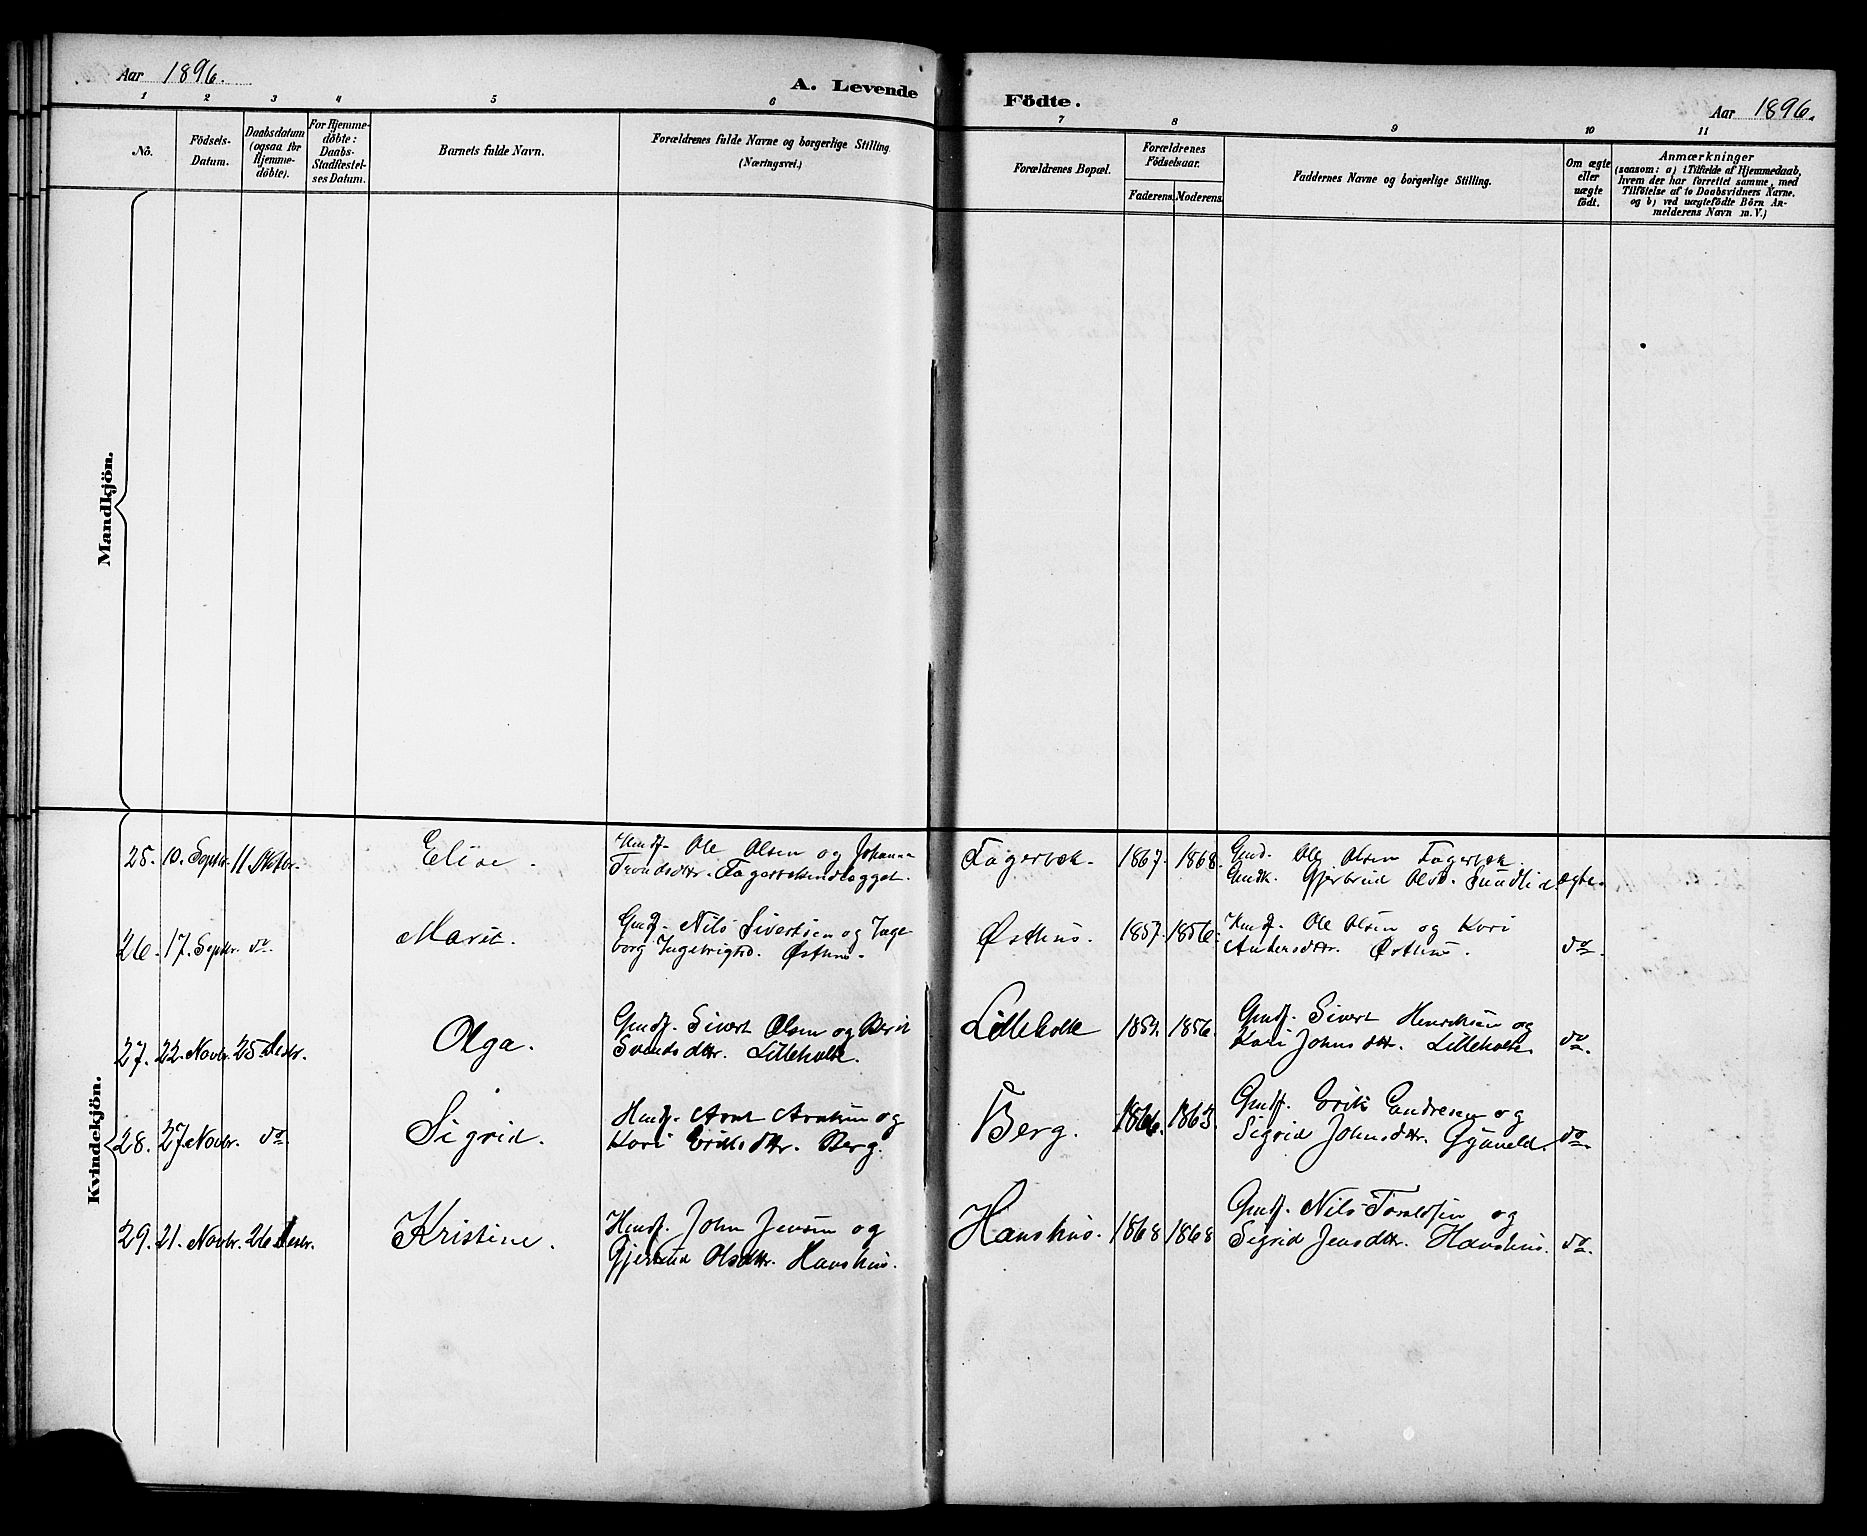 Aar 1896.
A. Levende Födte.
Aar 1896.
1 2 3 4 5 6 7 8 9 10 11
No.
Födsels-
Datum.
Daabsdatum
(ogsaa for
Hjemme-
döbte).
For Hjemme-
döbte:
Daabs-
Stadfæstel-
ses Datum.
Barnets fulde Navn.
Forældrenes fulde Navne og borgerlige Stilling.
(Næringsvei.)
Forældrenes Bopæl.
Forældrenes
Födselsaar.
Faderens. Moderens.
Faddernes Navne og borgerlige Stilling.
Om ægte
eller
uægte
födt.
Anmærkninger
(saasom: a) i Tilfælde af Hjemmedaab,
hvem der har forrettet samme, med
Tilföielse af to Daabsvidners Navne.
og b) ved uægtefödte Börn An-
melderens Navn m. V.)
Mandkjön.
Kvindekjön.
25. 10. Septbr. 11. Oktbr.
Elise.
Ole Olsen og Johanna
Trondsdtr.
Fagerbæk. 1867. 1868.
Ole Olsen Fagerbæk.
Gjertrud Olsd. Sundli
ægte.
26. 17. Septbr. do
Marit.
Gmd. Nils Sivertsen og Inge
borg Ingebrigtsd. Østhus.
Østhus. 1857. 1856.
Ole Olsen og Kari
Andersdtr. Østhus.
do.
27. 22. Novbr. 25 Decbr.
Olga.
Gmd. Sivert Olsen og Berit
Svendsdtr. Lilleholte.
Lilleholte 1852. 1856.
Gmd. Sivert Henriksen og
Kari Johnsdtr. Lilleholte.
do.
28. 27 Novbr. do
Sigrid.
Hmd. Arnt Arntsen og
Kari Eriksdtr. Berg.
Berg. 1866. 1863.
Gmd. Erik Endresen og
Sigrid Johnsdtr.
do.
29. 21. Novbr. 26 Decbr.
Kristine.
Hmd. John Jensen og
Gjertrud Olsdtr. Hanshus.
Hanshus. 1868 1868
Gmd. Nils Toraldsen og
Sigrid Jensdtr. Hanshus.
do.